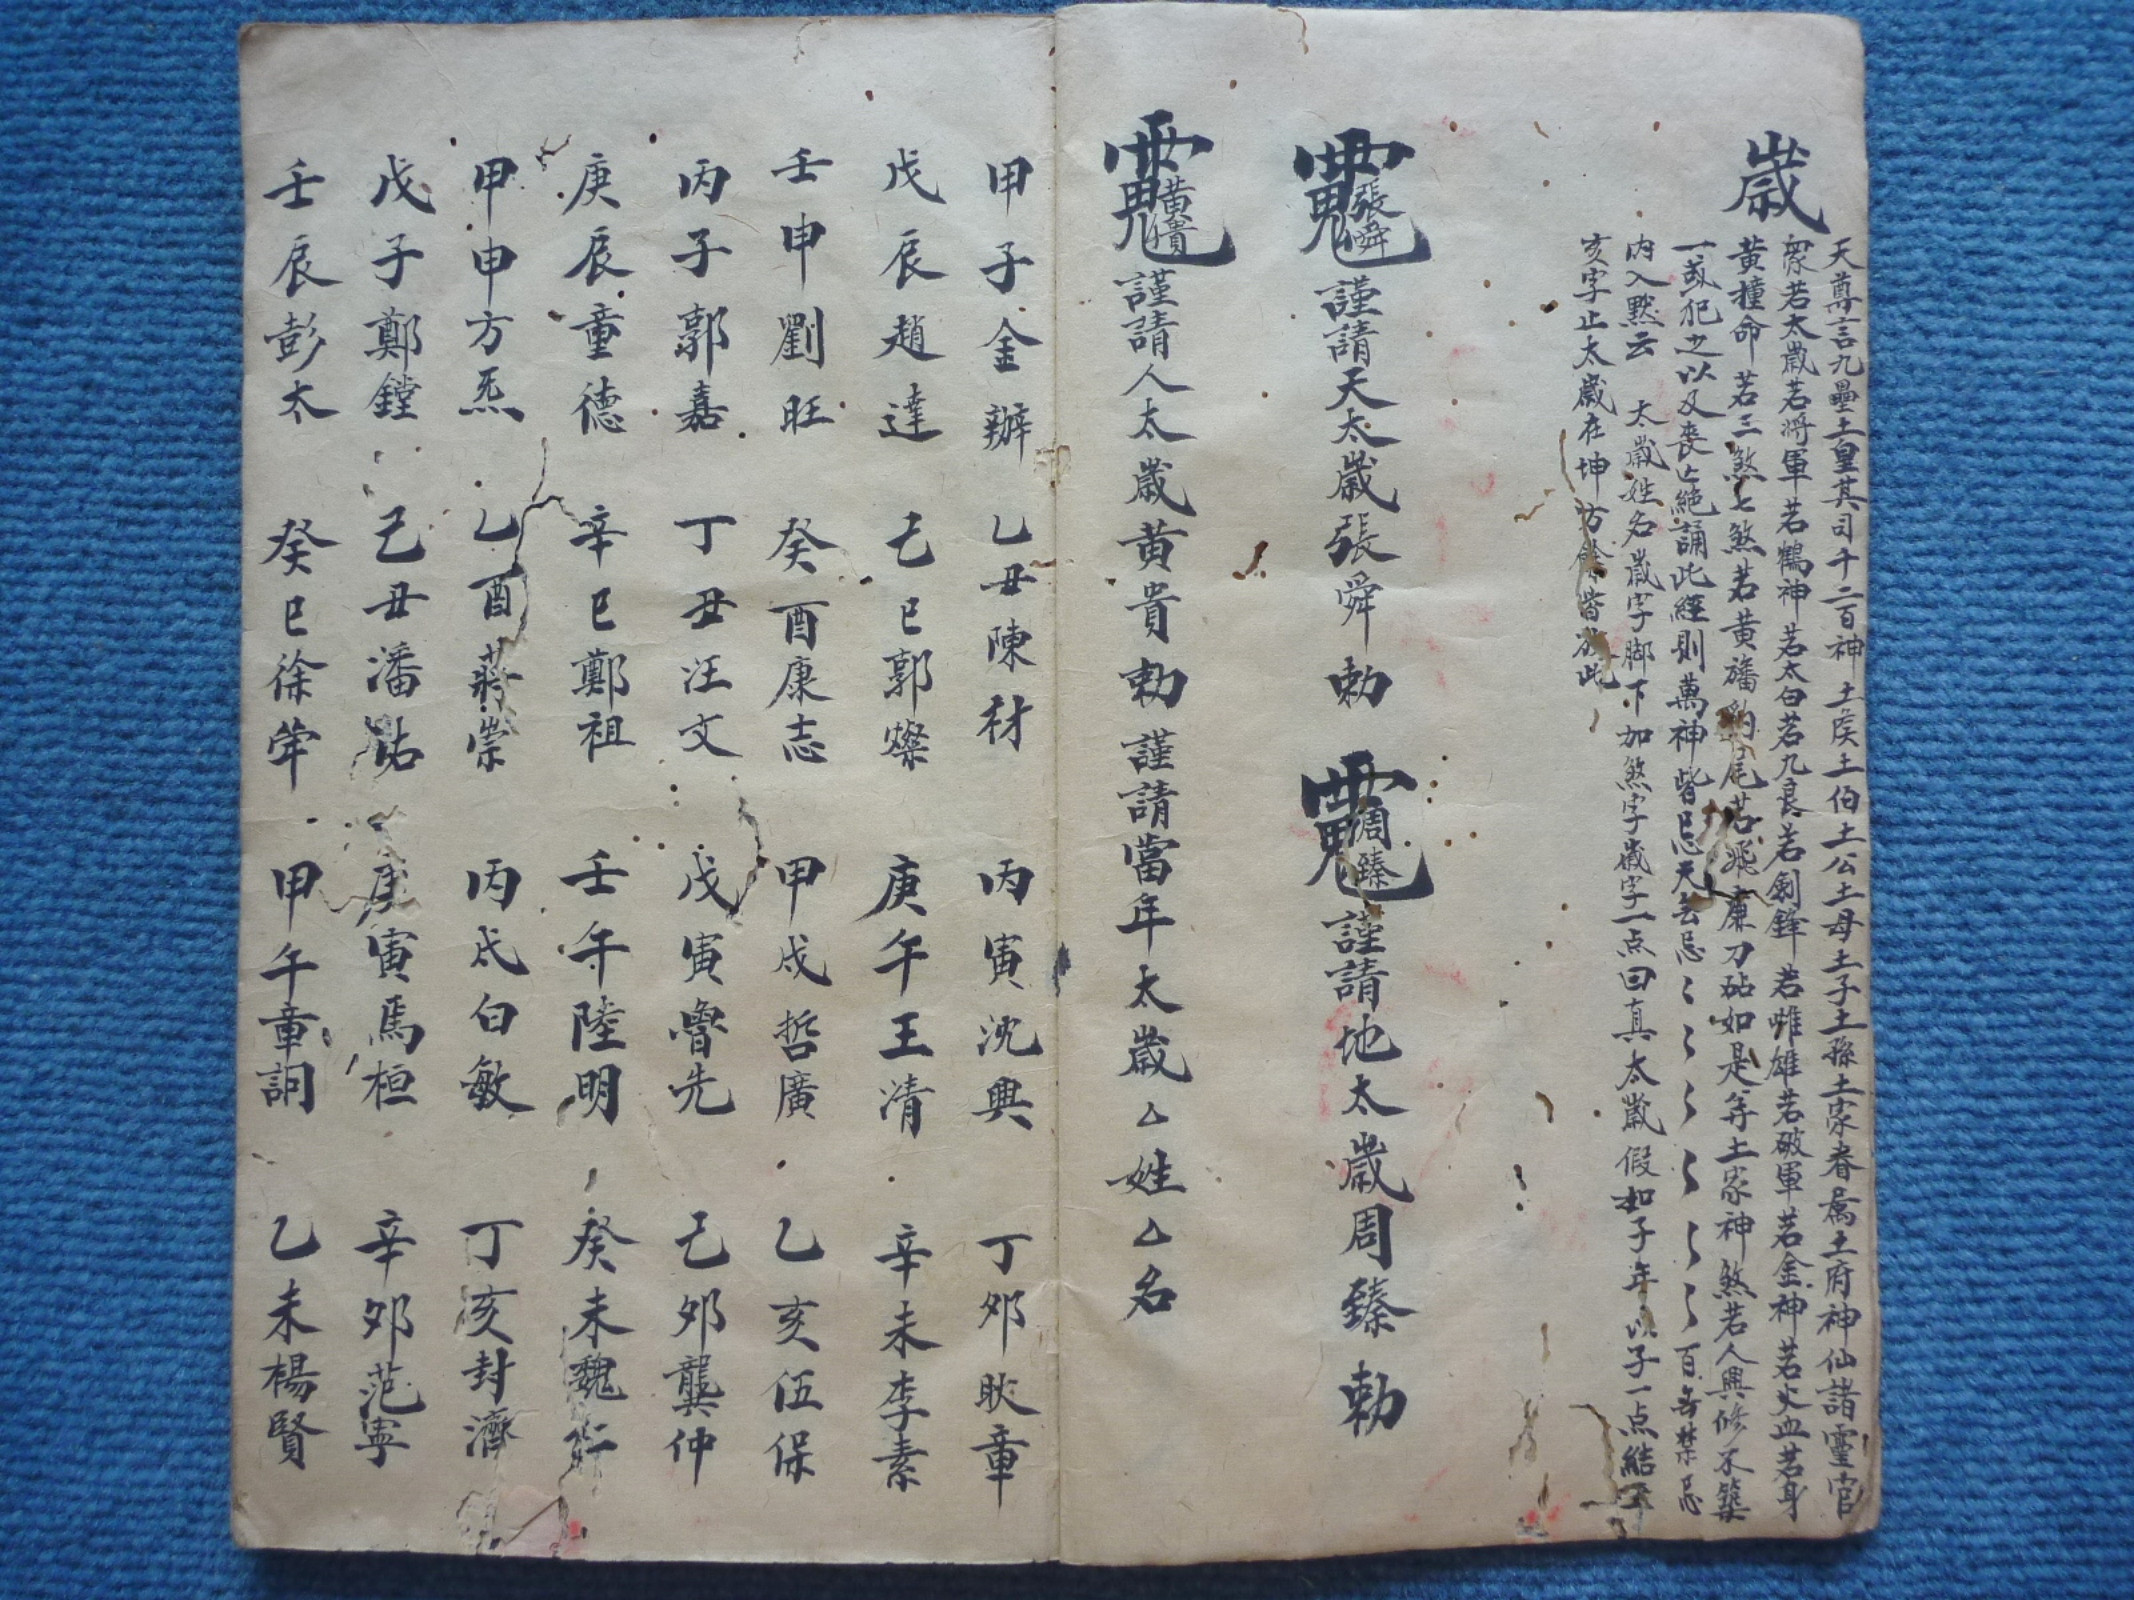 歲
天尊言九壘土皇其司千二百神土侯土伯土公土母土子土孫土家眷属土府神仙諸靈官
衆若太歲若将軍若鶴神若太白若九良若劍鋒若雌雄若破軍若金神若火血若身
黄撞命若三煞七煞若黄旛豹尾若飛廉刀砧如是等土家神煞若人興修不築
一或犯之以及喪亡絶誦此經則萬神皆忌天无忌百无禁忌
内入黙云 太歲姓名歲字脚下加煞字歲字一点曰真太歲假如子年以子一点結
亥字止太歲在坤方皆此
張舜 謹請天太歲張舜勅 周臻 謹請地太歲周臻勅
黄貴 謹請人太歲黄貴勅謹請當年太歲厶姓厶名
甲子金辦 乙丑陳材 丙寅沈興 丁夘耿章
戊辰趙達 己巳郭燦 庚午王清 辛未李素
壬申劉旺 癸酉康志 甲戌哲廣 乙亥伍保
丙子郭嘉 丁丑汪文 戊寅魯先 己夘龔仲
庚辰童德 辛巳鄭祖 壬午陸明 癸未魏仁
甲申方炁 乙酉蔣崇 丙戌白敏 丁亥封濟
戊子鄭鏜 己丑潘佑 庚寅馬桓 辛夘范寧
壬辰彭太 癸巳徐单 甲午章詞 乙未楊賢